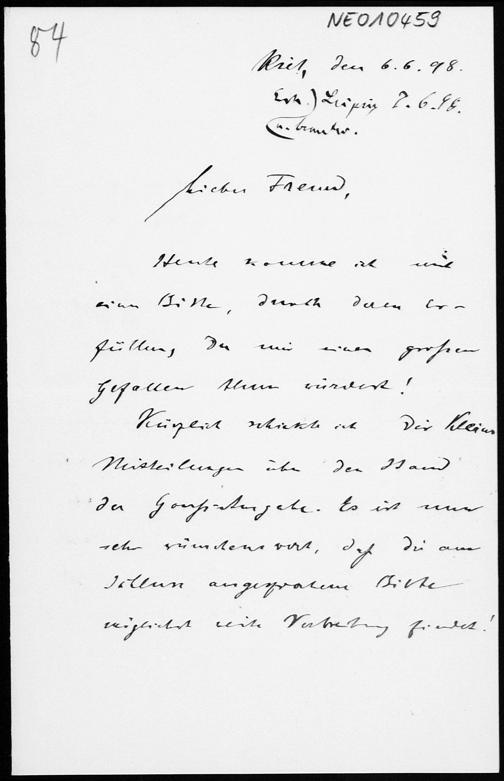 84
NE010459
Kiel, den 6.6.98.
Erh.) Leipzig 7.6.98.
u. beantw.
Lieber Freund,
Heute komme ich mit
einer Bitte, durch deren Er-
füllung Du mir einen großen
Gefallen thun würdest!
Kürzlich schickte ich Dir Kleins
Mitteilungen über den Stand
der Gauß-Ausgabe. Es ist nun
sehr wünschenswert, daß die am
Schlusse ausgesprochene Bitte
möglichst weite Verbreitung findet!